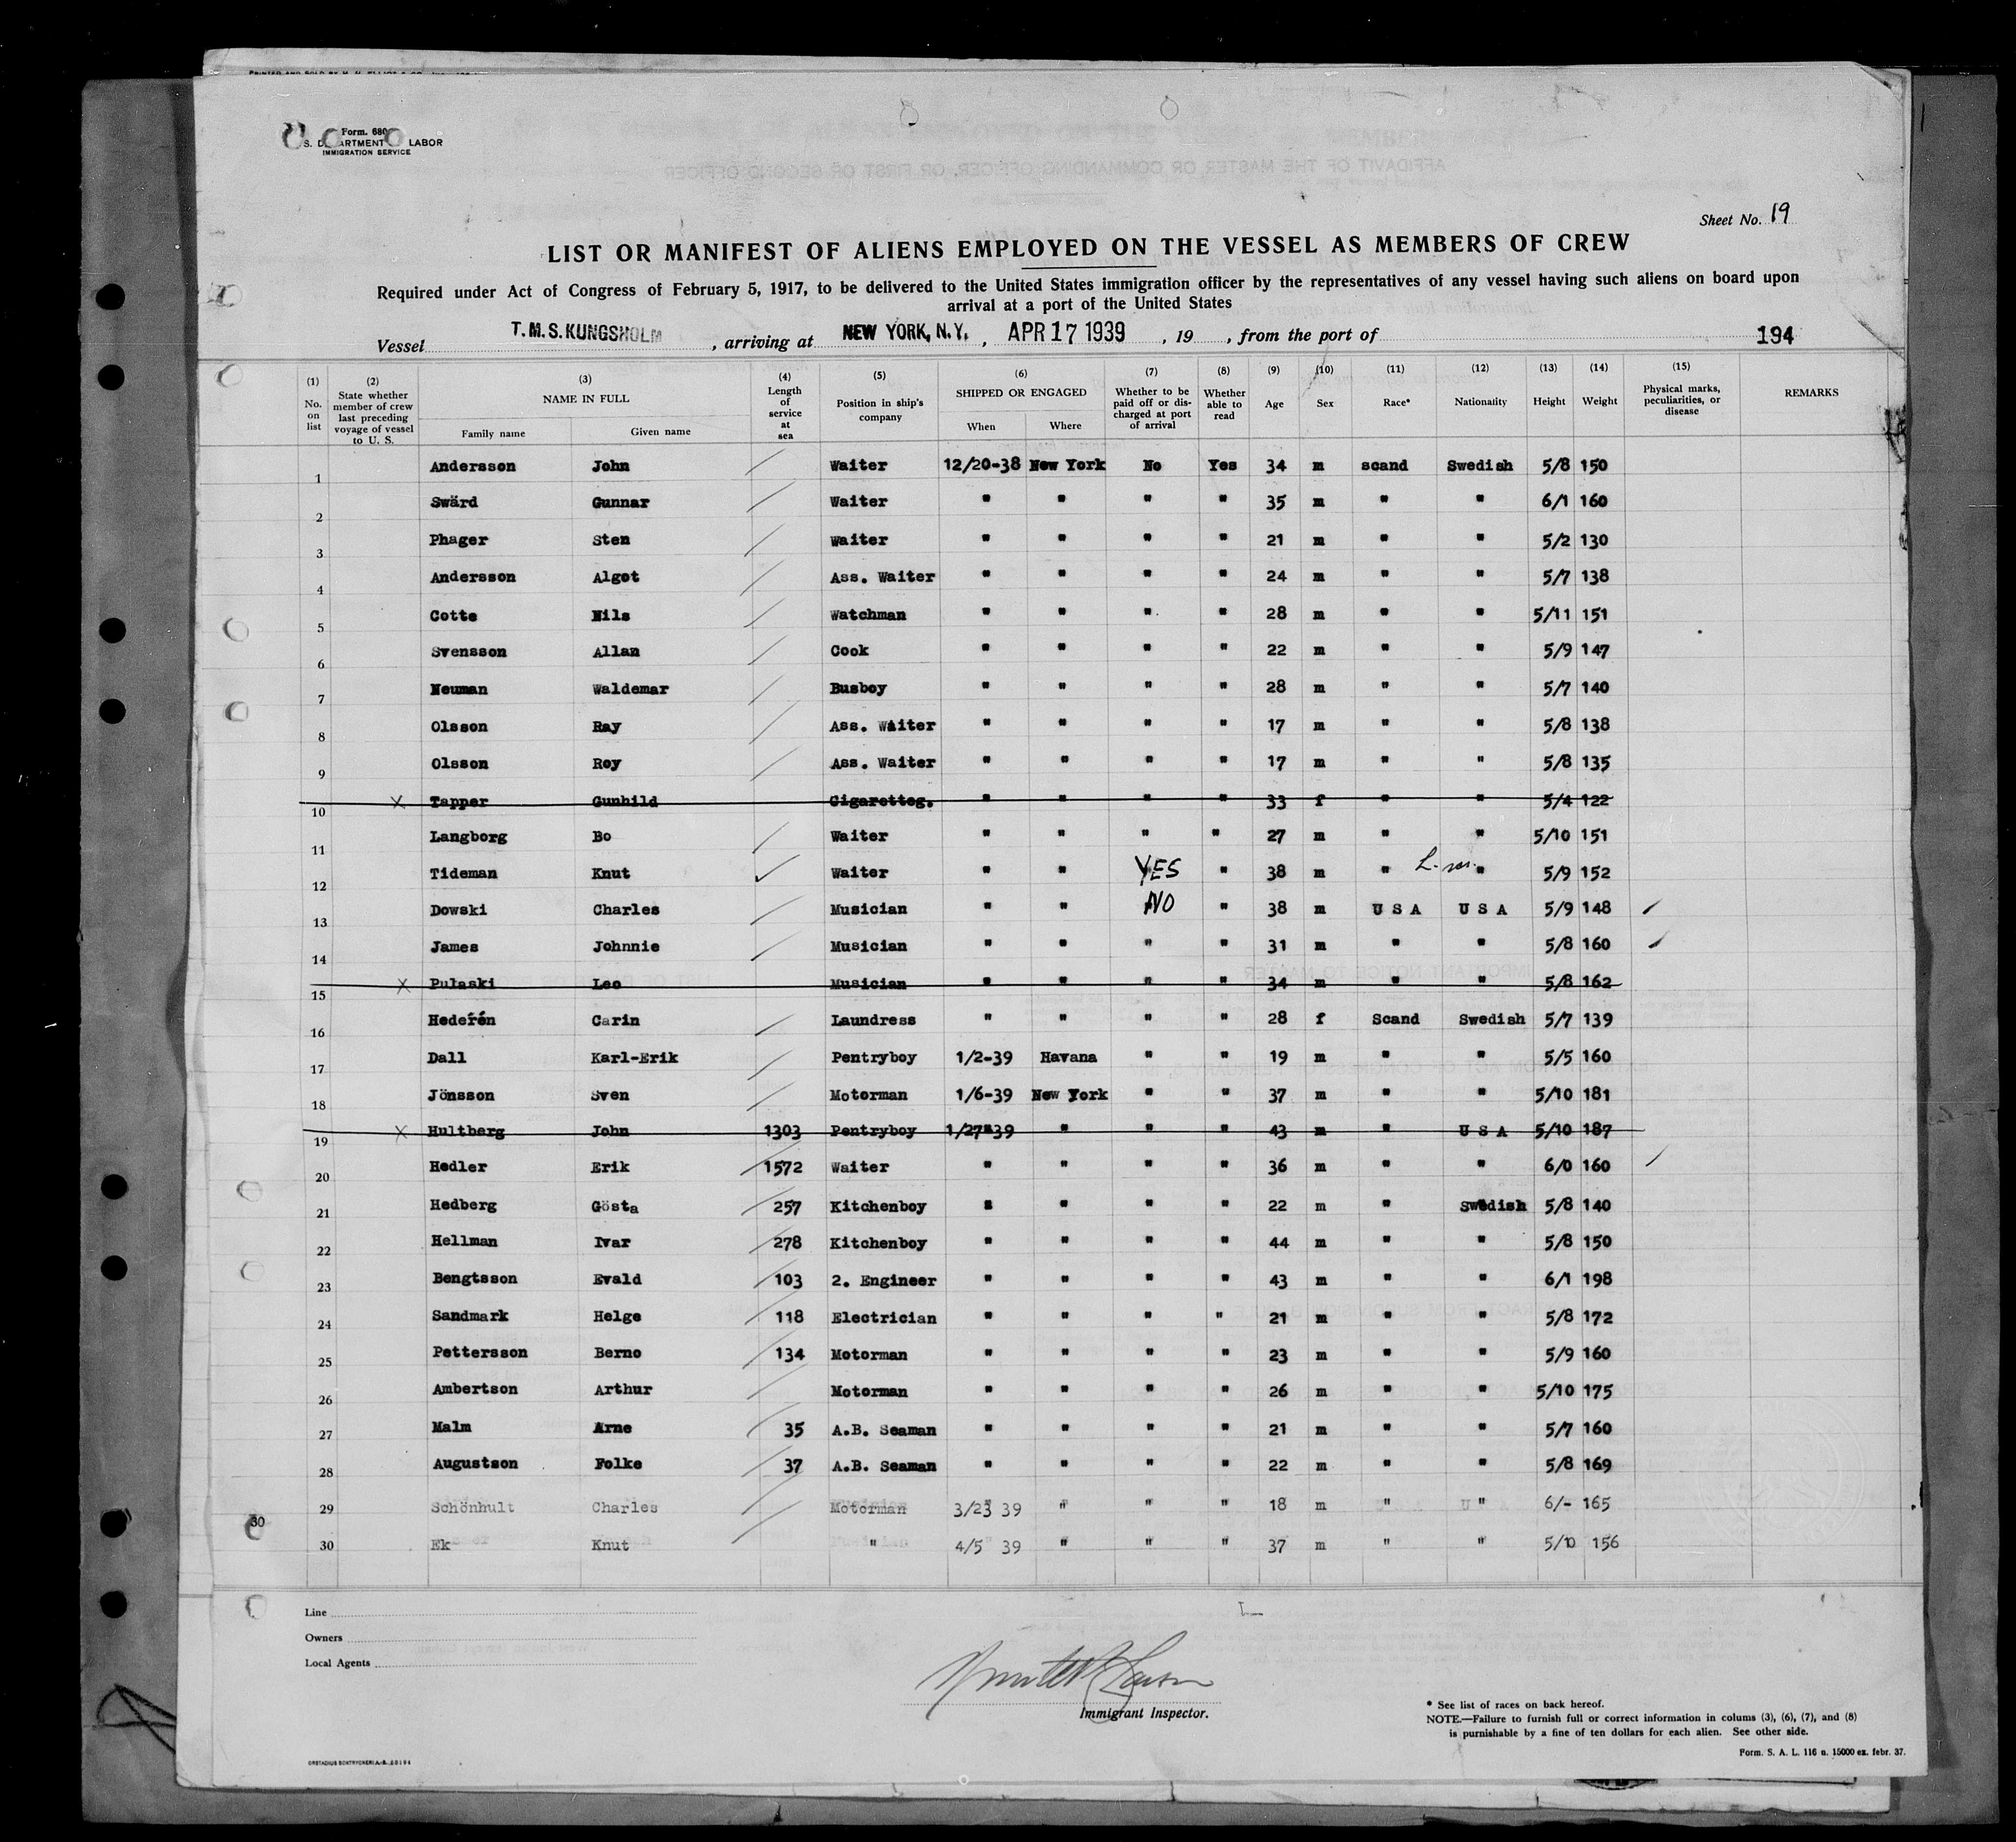 PRINTED AND SOLD BY
Form. 680
S. DEPARTMENT OF LABOR
IMMIGRATION SERVICE
Sheet No. 19
LIST OR MANIFEST OF ALIENS EMPLOYED ON THE VESSEL AS MEMBERS OF CREW
Required under Act of Congress of February 5, 1917, to be delivered to the United States immigration officer by the representatives of any vessel having such aliens on board upon
arrival at a port of the United States
Vessel T.M.S. KUNGSHOLM, arriving at NEW YORK, N.Y., APR 17 1939, 19 , from the port of 194
(1) No. on list (2) State whether member of crew last preceding voyage of vessel to U. S. (3) NAME IN FULL Family name Given name (4) Length of service at sea (5) Position in ship's company (6) SHIPPED OR ENGAGED When Where (7) Whether to be paid off or discharged at port of arrival (8) Whether able to read (9) Age (10) Sex (11) Race* (12) Nationality (13) Height (14) Weight (15) Physical marks, peculiarities, or disease REMARKS
1 Andersson John Waiter 12/20-38 New York No Yes 34 m scand Swedish 5/8 150
2 Swärd Gunnar Waiter " " " " 35 m " " 6/1 160
3 Phager Sten Waiter " " " " 21 m " " 5/2 130
4 Andersson Algot Ass. Waiter " " " " 24 m " " 5/7 138
5 Cotte Nils Watchman " " " " 28 m " " 5/11 151
6 Svensson Allan Cook " " " " 22 m " " 5/9 147
7 Neuman Waldemar Busboy " " " " 28 m " " 5/7 140
8 Olsson Ray Ass. Waiter " " " " 17 m " " 5/8 138
9 Olsson Roy Ass. Waiter " " " " 17 m " " 5/8 135
10 X Tapper Gunhild Cigaretteg. " " " " 33 f " " 5/4 122
11 Langborg Bo Waiter " " " " 27 m " " 5/10 151
12 Tideman Knut Waiter " " YES " 38 m " " 5/9 152
13 Dowski Charles Musician " " NO " 38 m U S A U S A 5/9 148
14 James Johnnie Musician " " " " 31 m " " 5/8 160
15 X Pulaski Leo Musician " " " " 34 m " " 5/8 162
16 Hederén Carin Laundress " " " " 28 f Scand Swedish 5/7 139
17 Dall Karl-Erik Pentryboy 1/2-39 Havana " " 19 m " " 5/5 160
18 Jönsson Sven Motorman 1/6-39 New York " " 37 m " " 5/10 181
19 X Hultberg John 1303 Pentryboy 1/27-39 " " " 43 m " U S A 5/10 187
20 Hedler Erik 1572 Waiter " " " " 36 m " " 6/0 160
21 Hedberg Gösta 257 Kitchenboy " " " " 22 m " Swedish 5/8 140
22 Hellman Ivar 278 Kitchenboy " " " " 44 m " " 5/8 150
23 Bengtsson Evald 103 2. Engineer " " " " 43 m " " 6/1 198
24 Sandmark Helge 118 Electrician " " " " 21 m " " 5/8 172
25 Pettersson Berno 134 Motorman " " " " 23 m " " 5/9 160
26 Ambertson Arthur Motorman " " " " 26 m " " 5/10 175
27 Malm Arne 35 A.B. Seaman " " " " 21 m " " 5/7 160
28 Augustson Folke 37 A.B. Seaman " " " " 22 m " " 5/8 169
29 Schönhult Charles Motorman 3/23 39 " " " 18 m " " 6/- 165
30
30 Ek Knut " 4/5 39 " " " 37 m " " 5/10 156
Line
Owners
Local Agents
Immigrant Inspector.
* See list of races on back hereof.
NOTE.—Failure to furnish full or correct information in colums (3), (6), (7), and (8)
is punishable by a fine of ten dollars for each alien. See other side.
Form. S. A. L. 116 n. 15000 ex. febr. 37.